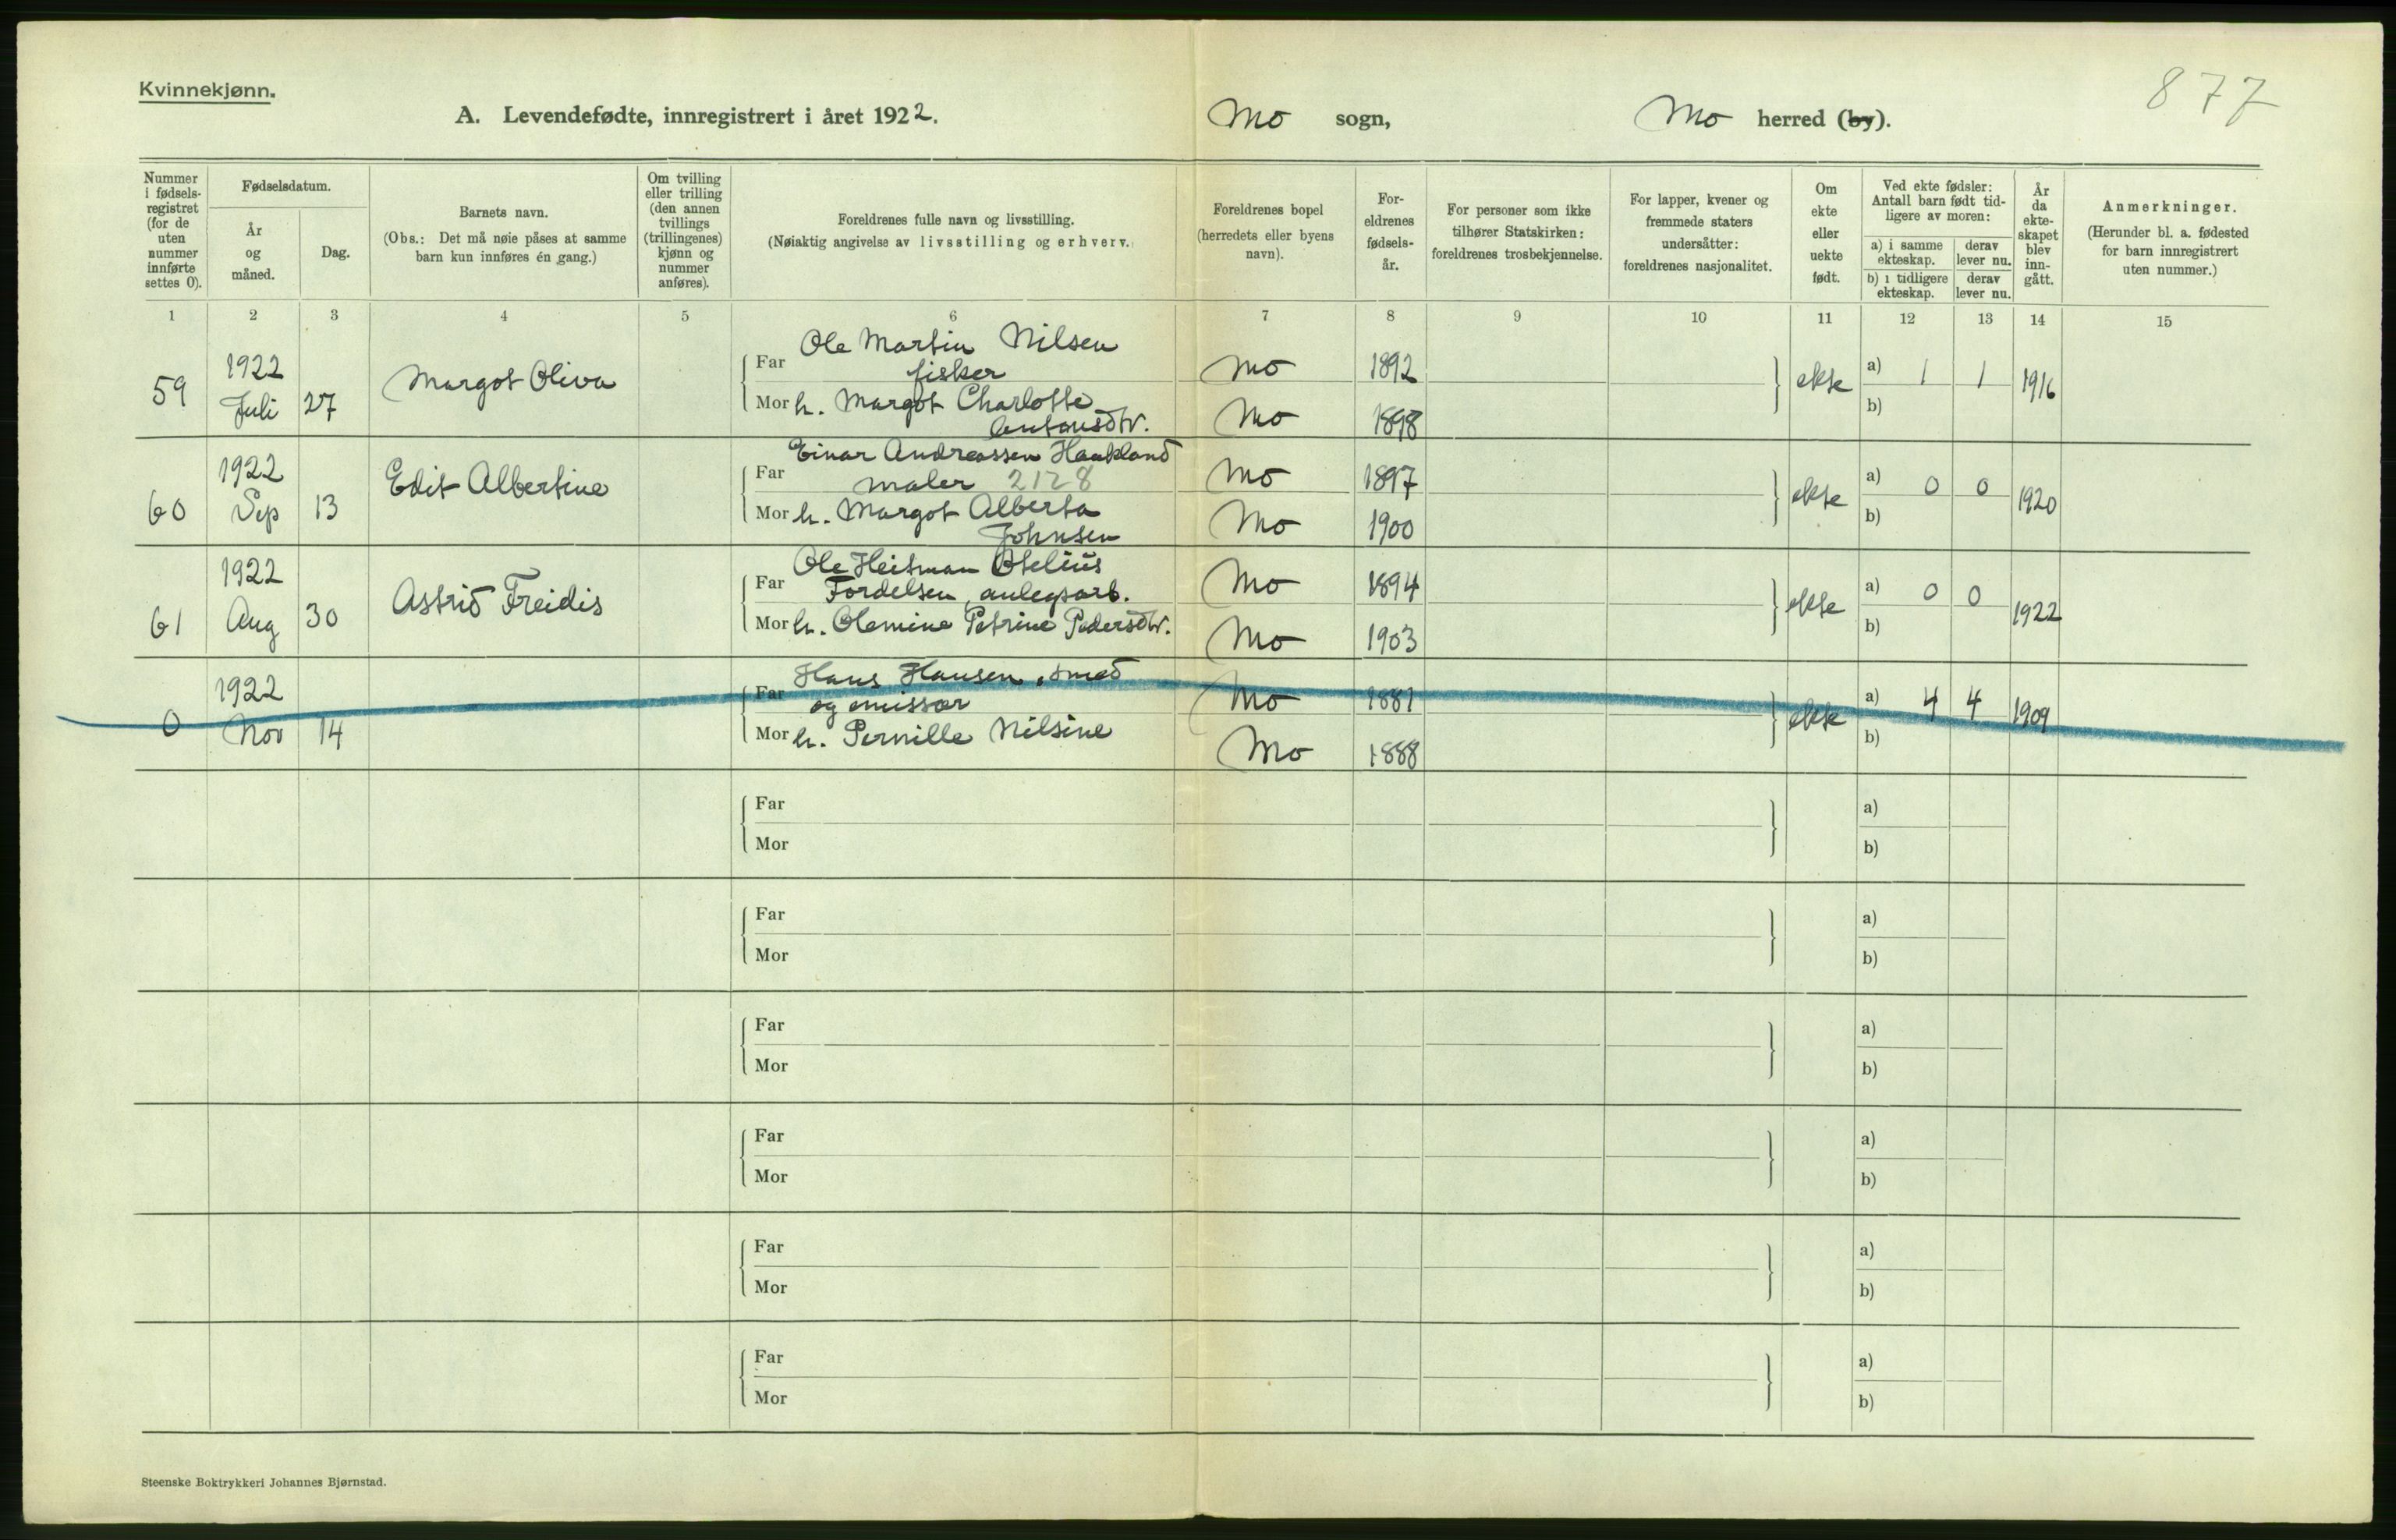 Kvinnekjønn.
A. Levendefødte, innregistrert i året 1922.
Mo sogn,
Mo herred (by).
877
Nummer i fødsels- registret (for de uten nummer innførte settes 0).
Fødselsdatum.
År og måned.
Dag.
Barnets navn.
(Obs.: Det må nøie påses at samme barn kun innføres én gang.)
Om tvilling eller trilling (den annen tvillings (trillingenes) kjønn og nummer anføres).
Foreldrenes fulle navn og livsstilling.
(Nøiaktig angivelse av livsstilling og erhverv.)
Foreldrenes bopel (herredets eller byens navn).
For- eldrenes fødsels- år.
For personer som ikke tilhører Statskirken: foreldrenes trosbekjennelse.
For lapper, kvener og fremmede staters undersåtter: foreldrenes nasjonalitet.
Om ekte eller uekte født.
Ved ekte fødsler: Antall barn født tid- ligere av moren:
a) i samme ekteskap.
derav lever nu.
b) i tidligere ekteskap.
derav lever nu.
År da ekte- skapet blev inn- gått.
Anmerkninger.
(Herunder bl. a. fødested for barn innregistrert uten nummer.)
1 2 3 4 5 6 7 8 9 10 11 12 13 14 15
59
1922
Juli 27
Margot Oliva
Far
Ole Martin Nilsen
fisker
Mo 1892
Mor h. Margot Charlotte
Antonsdtr.
Mo 1898
ekte
a) 1 1
b)
1916
60
1922
Sep 13
Edit Albertine
Far
Einar Andreassen Haukland
maler 2128
Mo 1897
Mor h. Margot Alberta
Johnsen
Mo 1900
ekte
a) 0 0
b)
1920
61
1922
Aug 30
Astrid Freidis
Far
Ole Heitman Otelius
Fordelsen, anlegsarb.
Mo 1894
Mor h. Olemine Petrine Pedersdtr.
Mo 1903
ekte
a) 0 0
b)
1922
0
1922
Nov 14
Far
Hans Hansen, smed
og emissær
Mo 1881
Mor h. Pernille Nilsine
Mo 1888
ekte
a) 4 4
b)
1909
Far a)
Mor b)
Far a)
Mor b)
Far a)
Mor b)
Far a)
Mor b)
Far a)
Mor b)
Far a)
Mor b)
Steenske Boktrykkeri Johannes Bjørnstad.